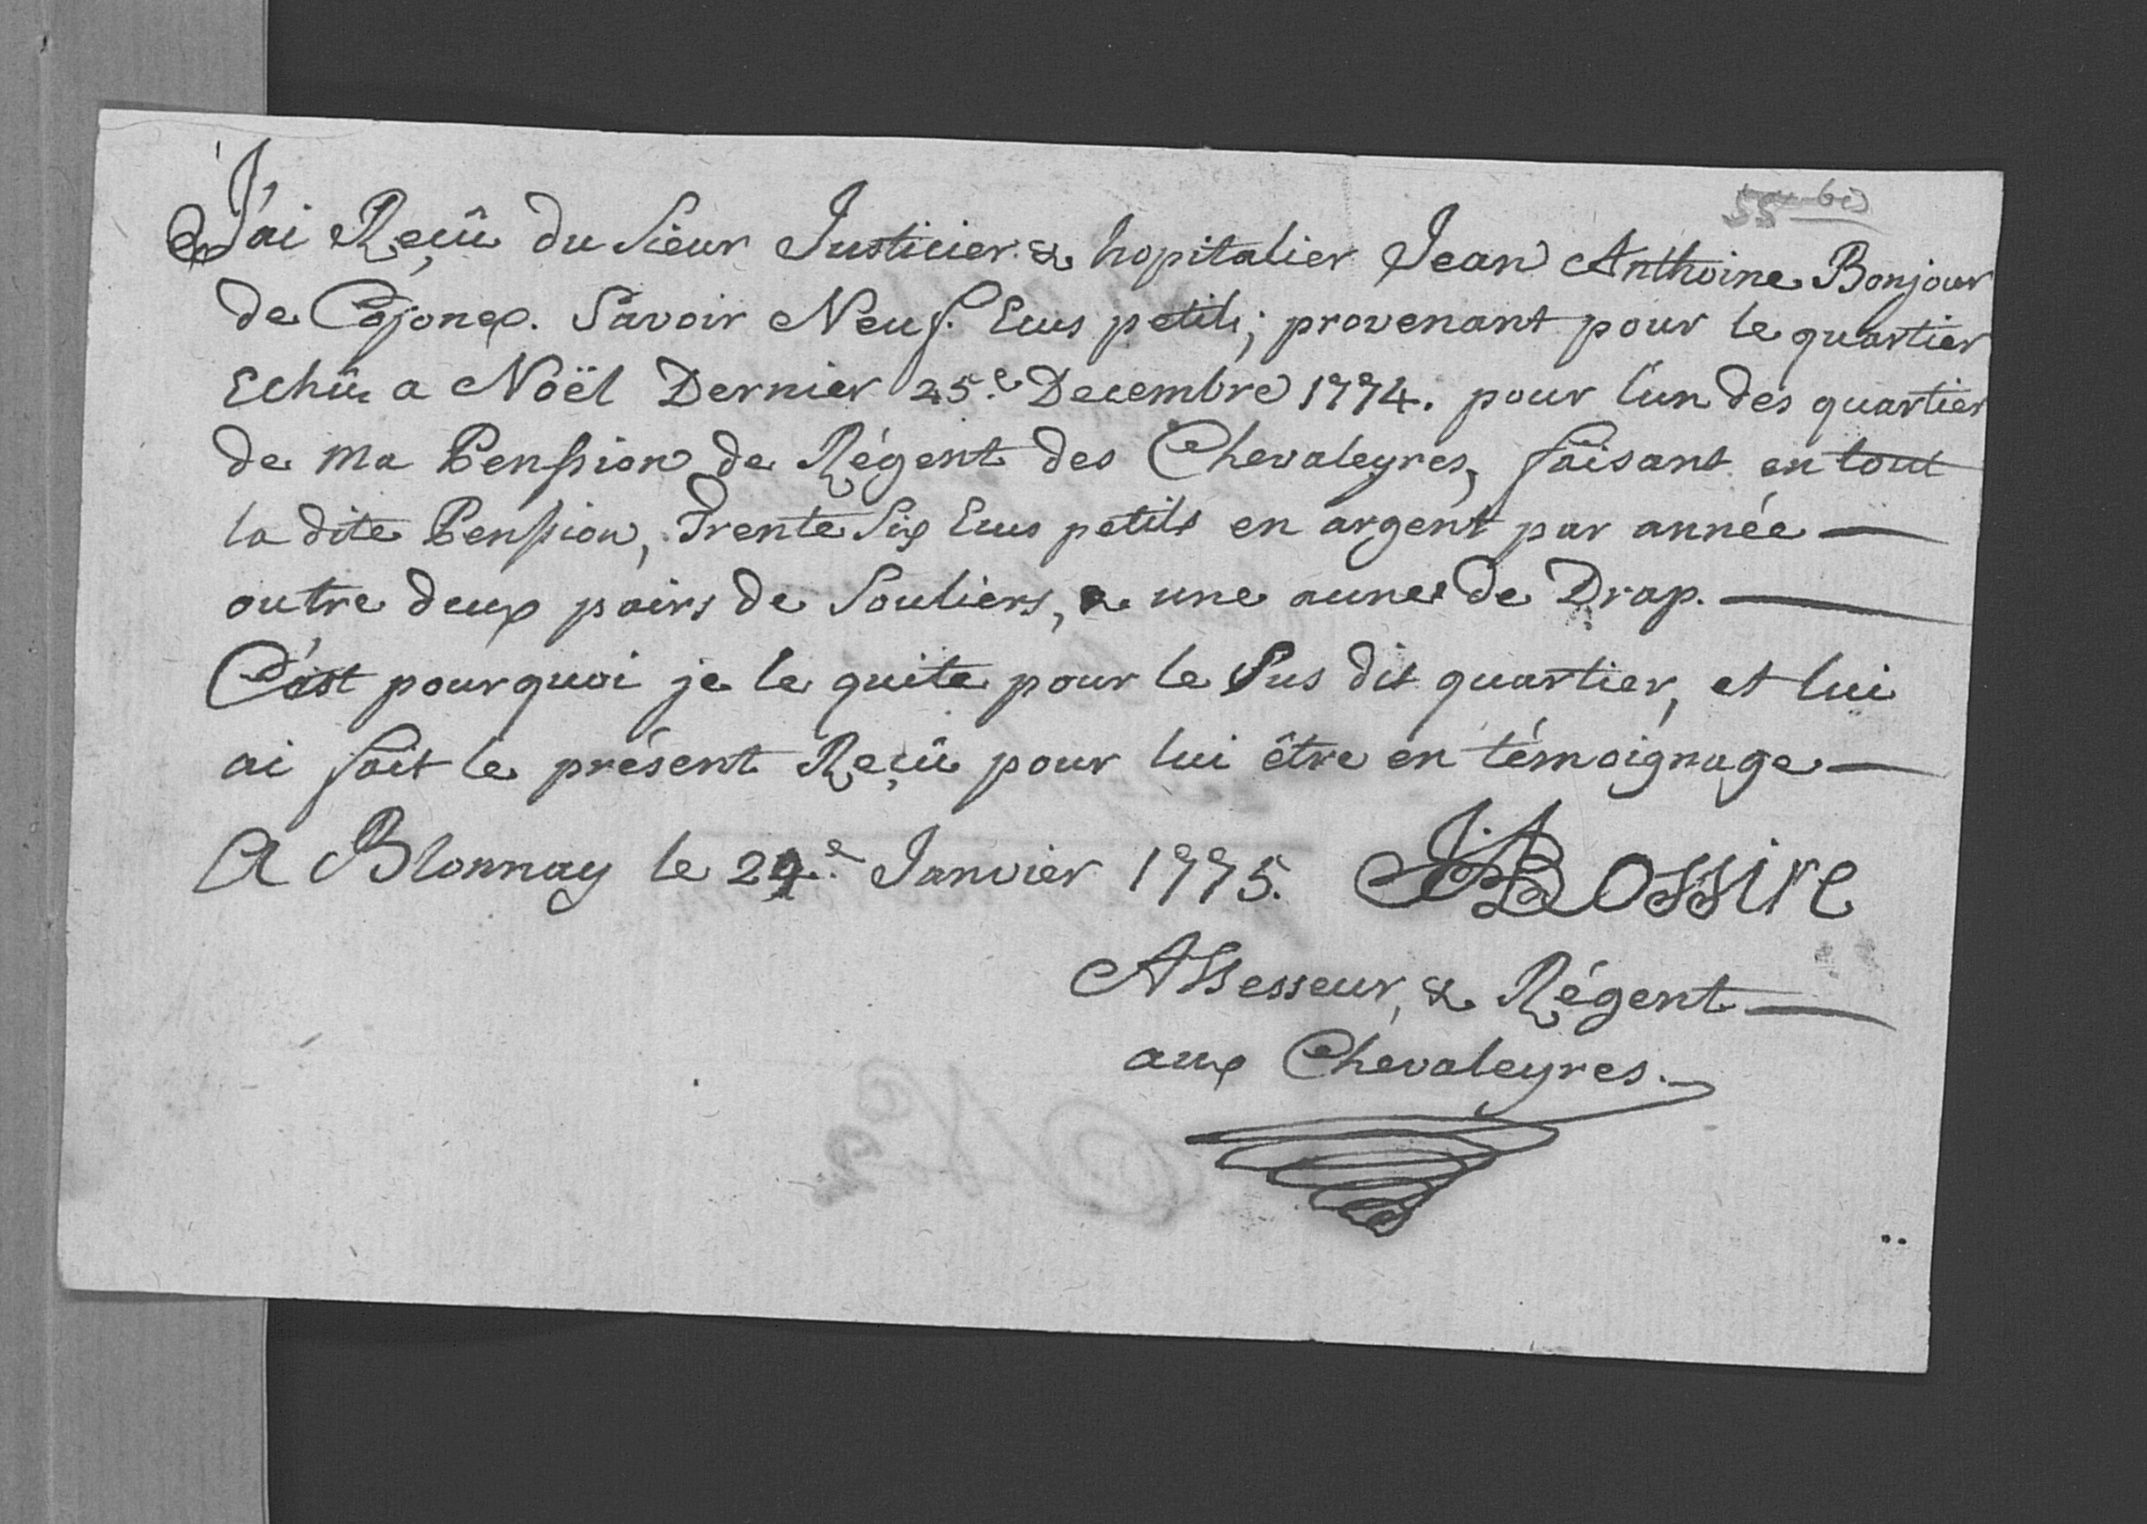 J'ai Reçû du Sieur Justicier & hopitalier Jean Anthoine Bonjour
de Cojonex. Savoir Neuf. Ecus petits; provenant pour le quartier
Echû a Noël Dernier 25.e Decembre 1774. pour l'un des quartier
de ma Penssion de Régent des Chevaleyres, faisant en tout
la dite Penssion, Trente Six Ecus petits en argent par année —
outre deux pairs de Souliers, & une aune de Drap. —
C'est pourquoi je le quite pour le Sus dit quartier, et lui
ai fait le présent Reçû pour lui être en témoignage —
A Blonnay le 24.e Janvier 1775. Bossire
Assesseur, & Régent —
aux Chevaleyres.